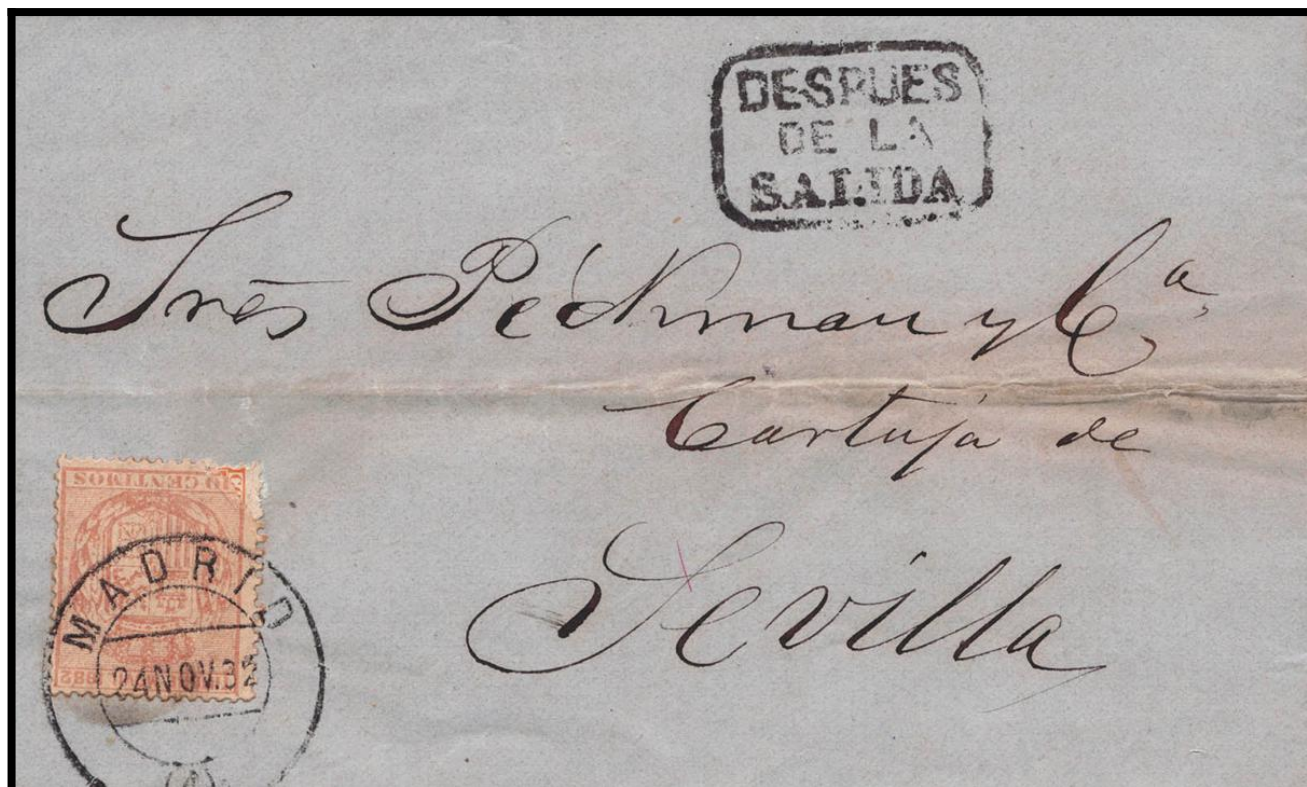 DESPUES
DE LA
SALIDA
Sres Pickman y Cª
Cartuja de
Sevilla
10 CENTIMOS
MADRID
24 NOV. 82
(4)